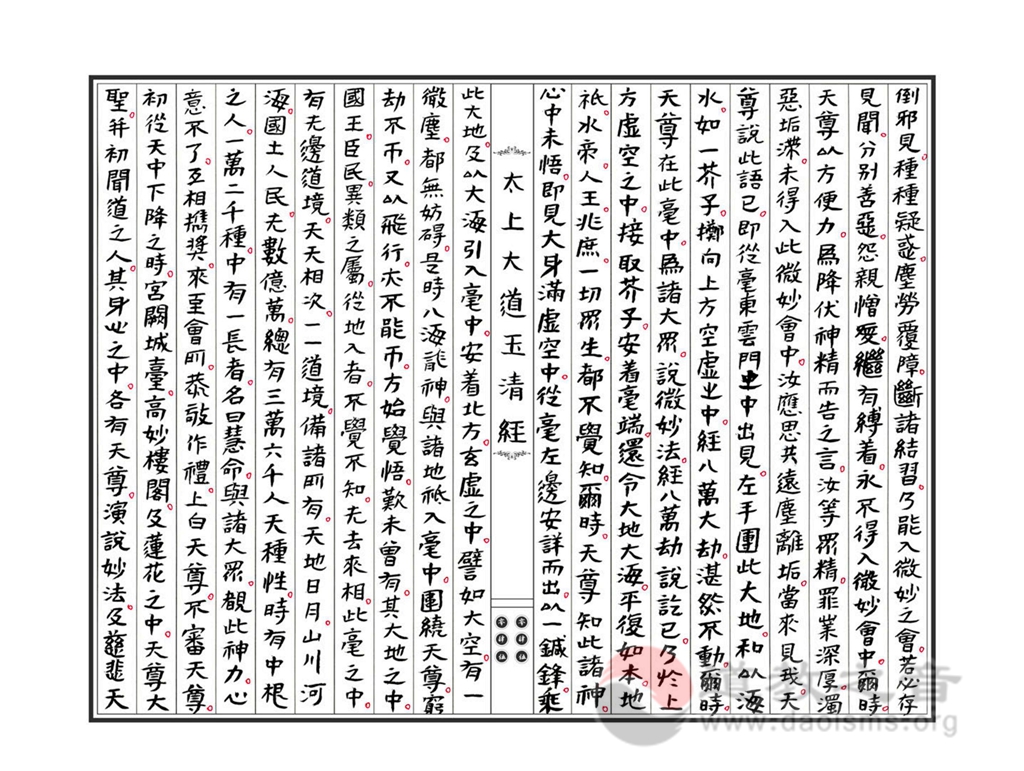 倒邪見。種種疑惑。塵勞覆障。斷諸結習。乃能入微妙之會。若必存
見聞。分別善惡。怨親憎愛。繼有縛着。永不得入微妙會中。爾時
天尊以方便力。為降伏神精。而告之言。汝等眾精。罪業深厚。濁
惡垢滯。未得入此微妙會中。汝應思共遠塵離垢。當來見我。天
尊說此語已。即從毫東雲門中出見。左手團此大地。和以海
水。如一芥子。擲向上方空虛之中。經八萬大劫。湛然不動。爾時
天尊在此毫中。為諸大眾。說微妙法。經八萬劫。說訖已。乃於上
方虛空之中。接取芥子。安着毫端。還令大地大海平復如本。地
祇。水帝。人王。兆庶。一切眾生。都不覺知。爾時。天尊知此諸神
心中未悟。即見大身。滿虛空中。從毫左邊。安詳而出。以一鍼鋒。乘
太上大道玉清經
此大地。及以大海。引入毫中。安着北方玄虛之中。譬如大空。有一
微塵。都無妨碍。是時八海龍神。與諸地祇。入毫中。圍繞天尊。窮
劫不帀。又以飛行。亦不能帀。方始覺悟。歎未曾有。其大地之中
國王。臣民。異類之屬。從地入者。不覺不知。无去來相。此毫之中
有无邊道境。天天相次。一一道境。備諸所有。天地日月。山川河
海。國土人民。无數億萬。總有三萬六千人天種性。時有中根
之人。一萬二千種。中有一長者。名曰慧命。與諸大眾。覩此神力。心
意不了。互相攜獎。來至會所。恭敬作禮。上白天尊。不審天尊
初從天中下降之時。宮闕城臺。高妙樓閣。及蓮花之中。天尊大
聖。并初聞道之人。其身心之中。各有天尊。演說妙法。及慈悲天
道教之音
www.daoisms.org